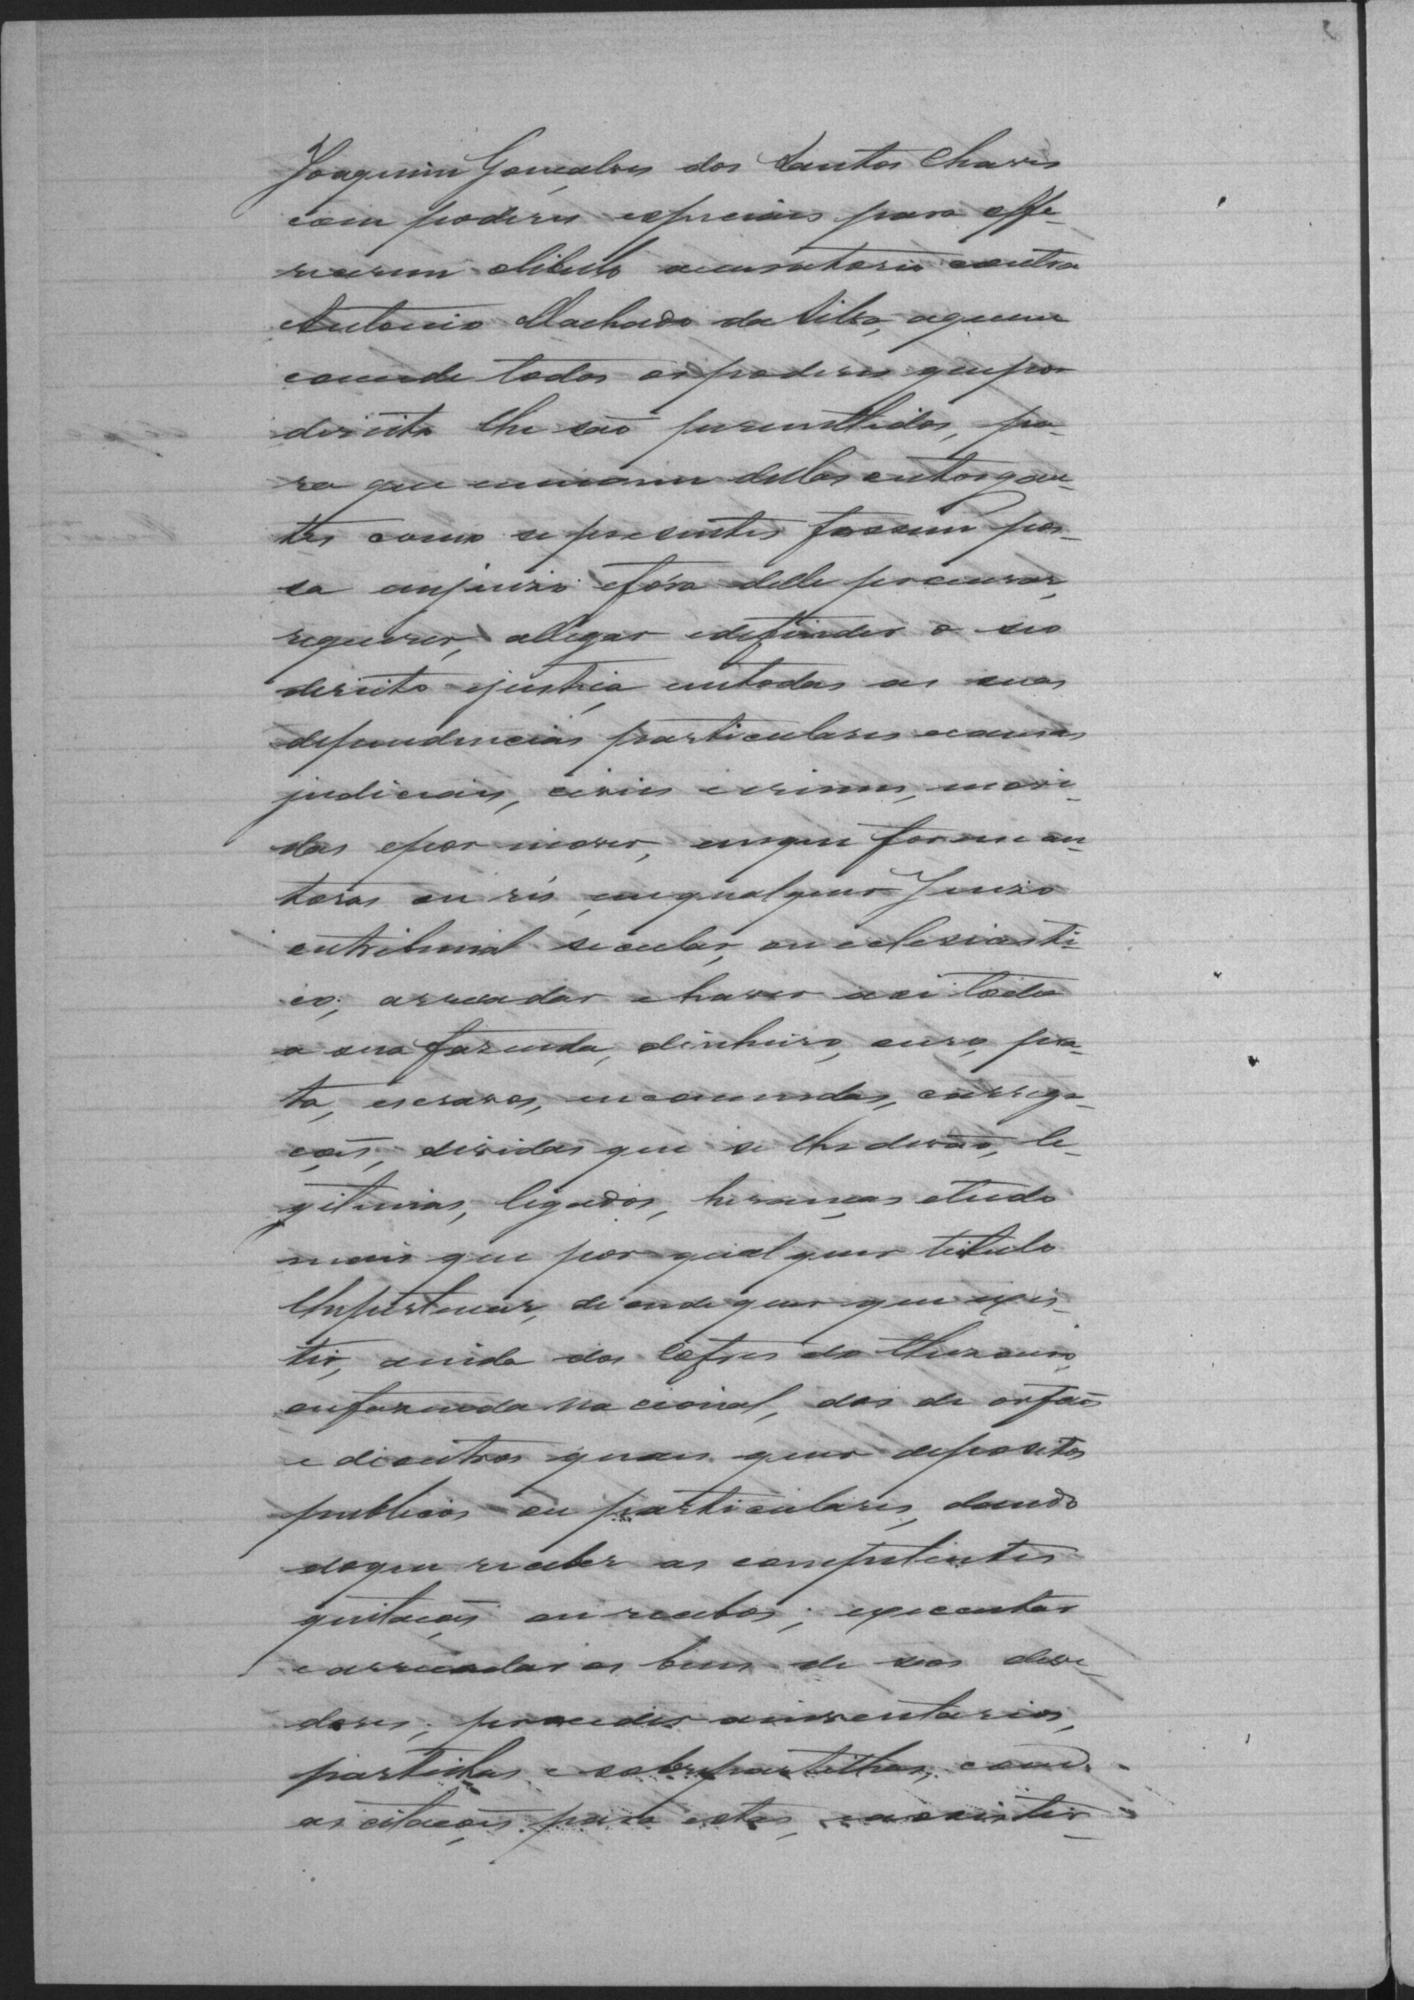 Joaquim Gonçalves dos Santos Chaves
com poderes especiaes para offe-
recerem o libello accusatorio contra
Antonio Machado da Silva, a quem
concede todos os poderes que por
direito lhe são permettidos, pa-
ra que em nome delles outorgan-
tes como se presentes fossem pos-
sa em juizo e fóra delle procurar,
requerer, allegar e defender o seo
direito e justiça, em todas as suas
dependencias particulares e causas
judiciaes, civeis e crimes, movi-
das e por mover, em que forem au-
tores ou rés, em qualquer Juizo
ou tribunal secular, ou eclesiasti-
co; arrecadar e haver a si toda
a sua fazenda, dinheiro, ouro, pra-
ta, escravos, encommendas, carrega-
ções, dividas que se lhe devão, le-
gitimas, legados, heranças e tudo
mais que por qualquer titulo
lhe pertencer, de onde quer que exis-
tir, ainda dos cofres do thesouro,
ou fazenda nacional, dos de orfãos
e de outros quaes quer depositos
publicos ou particulares, dando
do que receber as competentes
quitações ou recibos; executar
e arrecadar os bens de seos deve-
dores; proceder a inventarios,
partilhas e sobrepartilhas, com
as citações para estas, e assistir